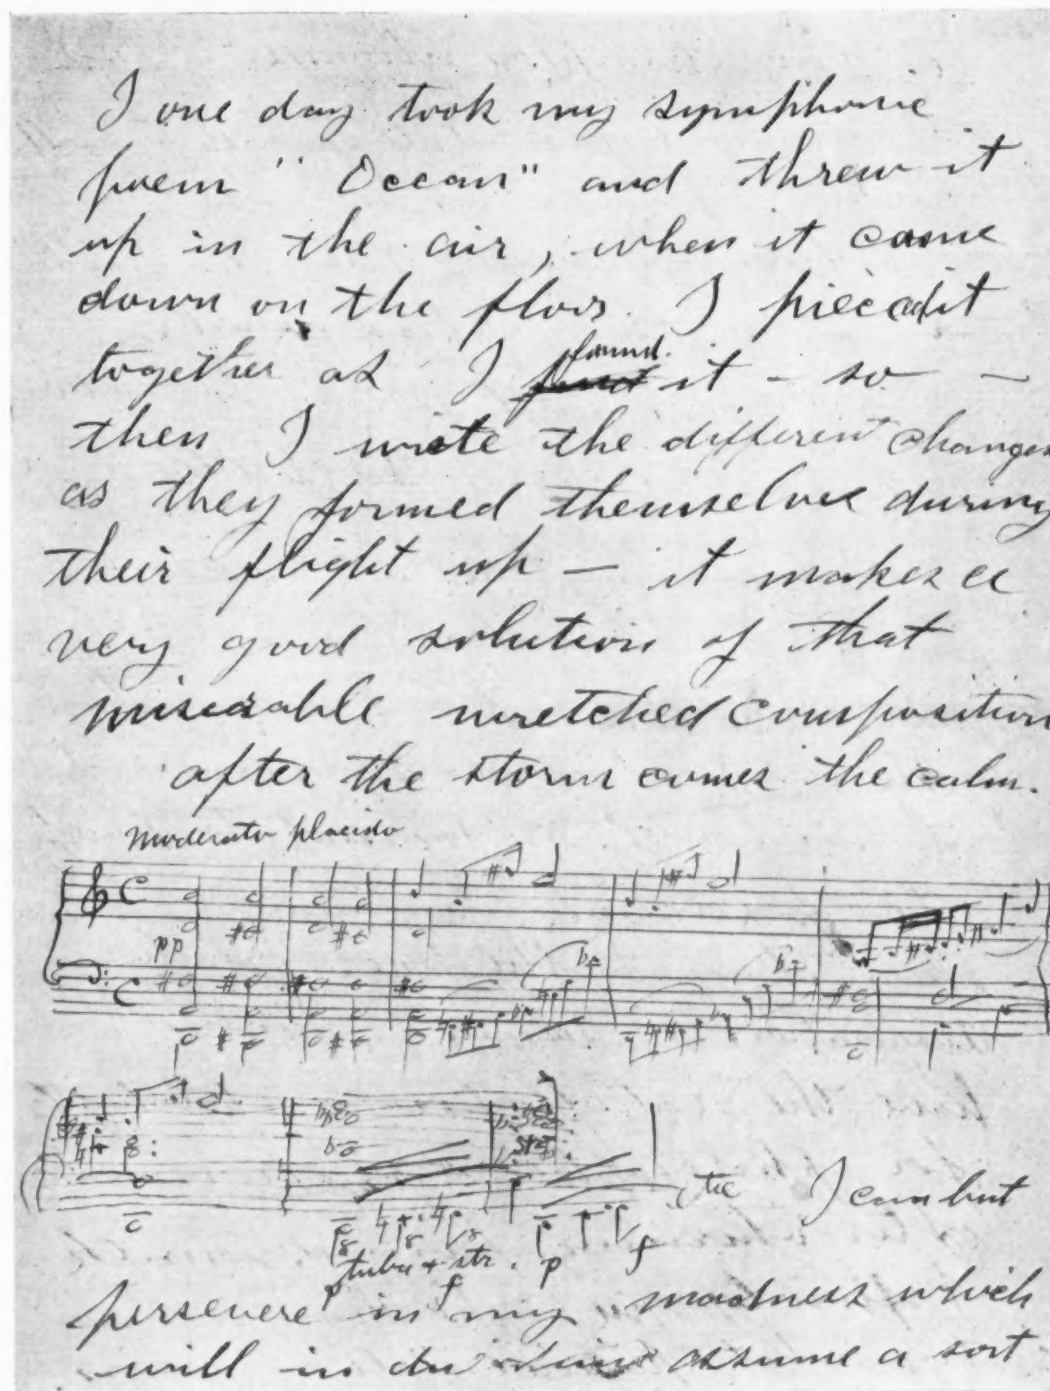 I one day took my symphonic
poem "Ocean" and threw it
up in the air, when it came
down on the floor. I pieced it
together as I found it - so -
then I wrote the different changes
as they formed themselves during
their flight up — it makes a
very good solution of that
miserable wretched composition
after the storm comes the calm.
Moderato placido
pp
etc I can but
tuba + str.
p f p f
persevere in my madness which
will in due time assume a sort